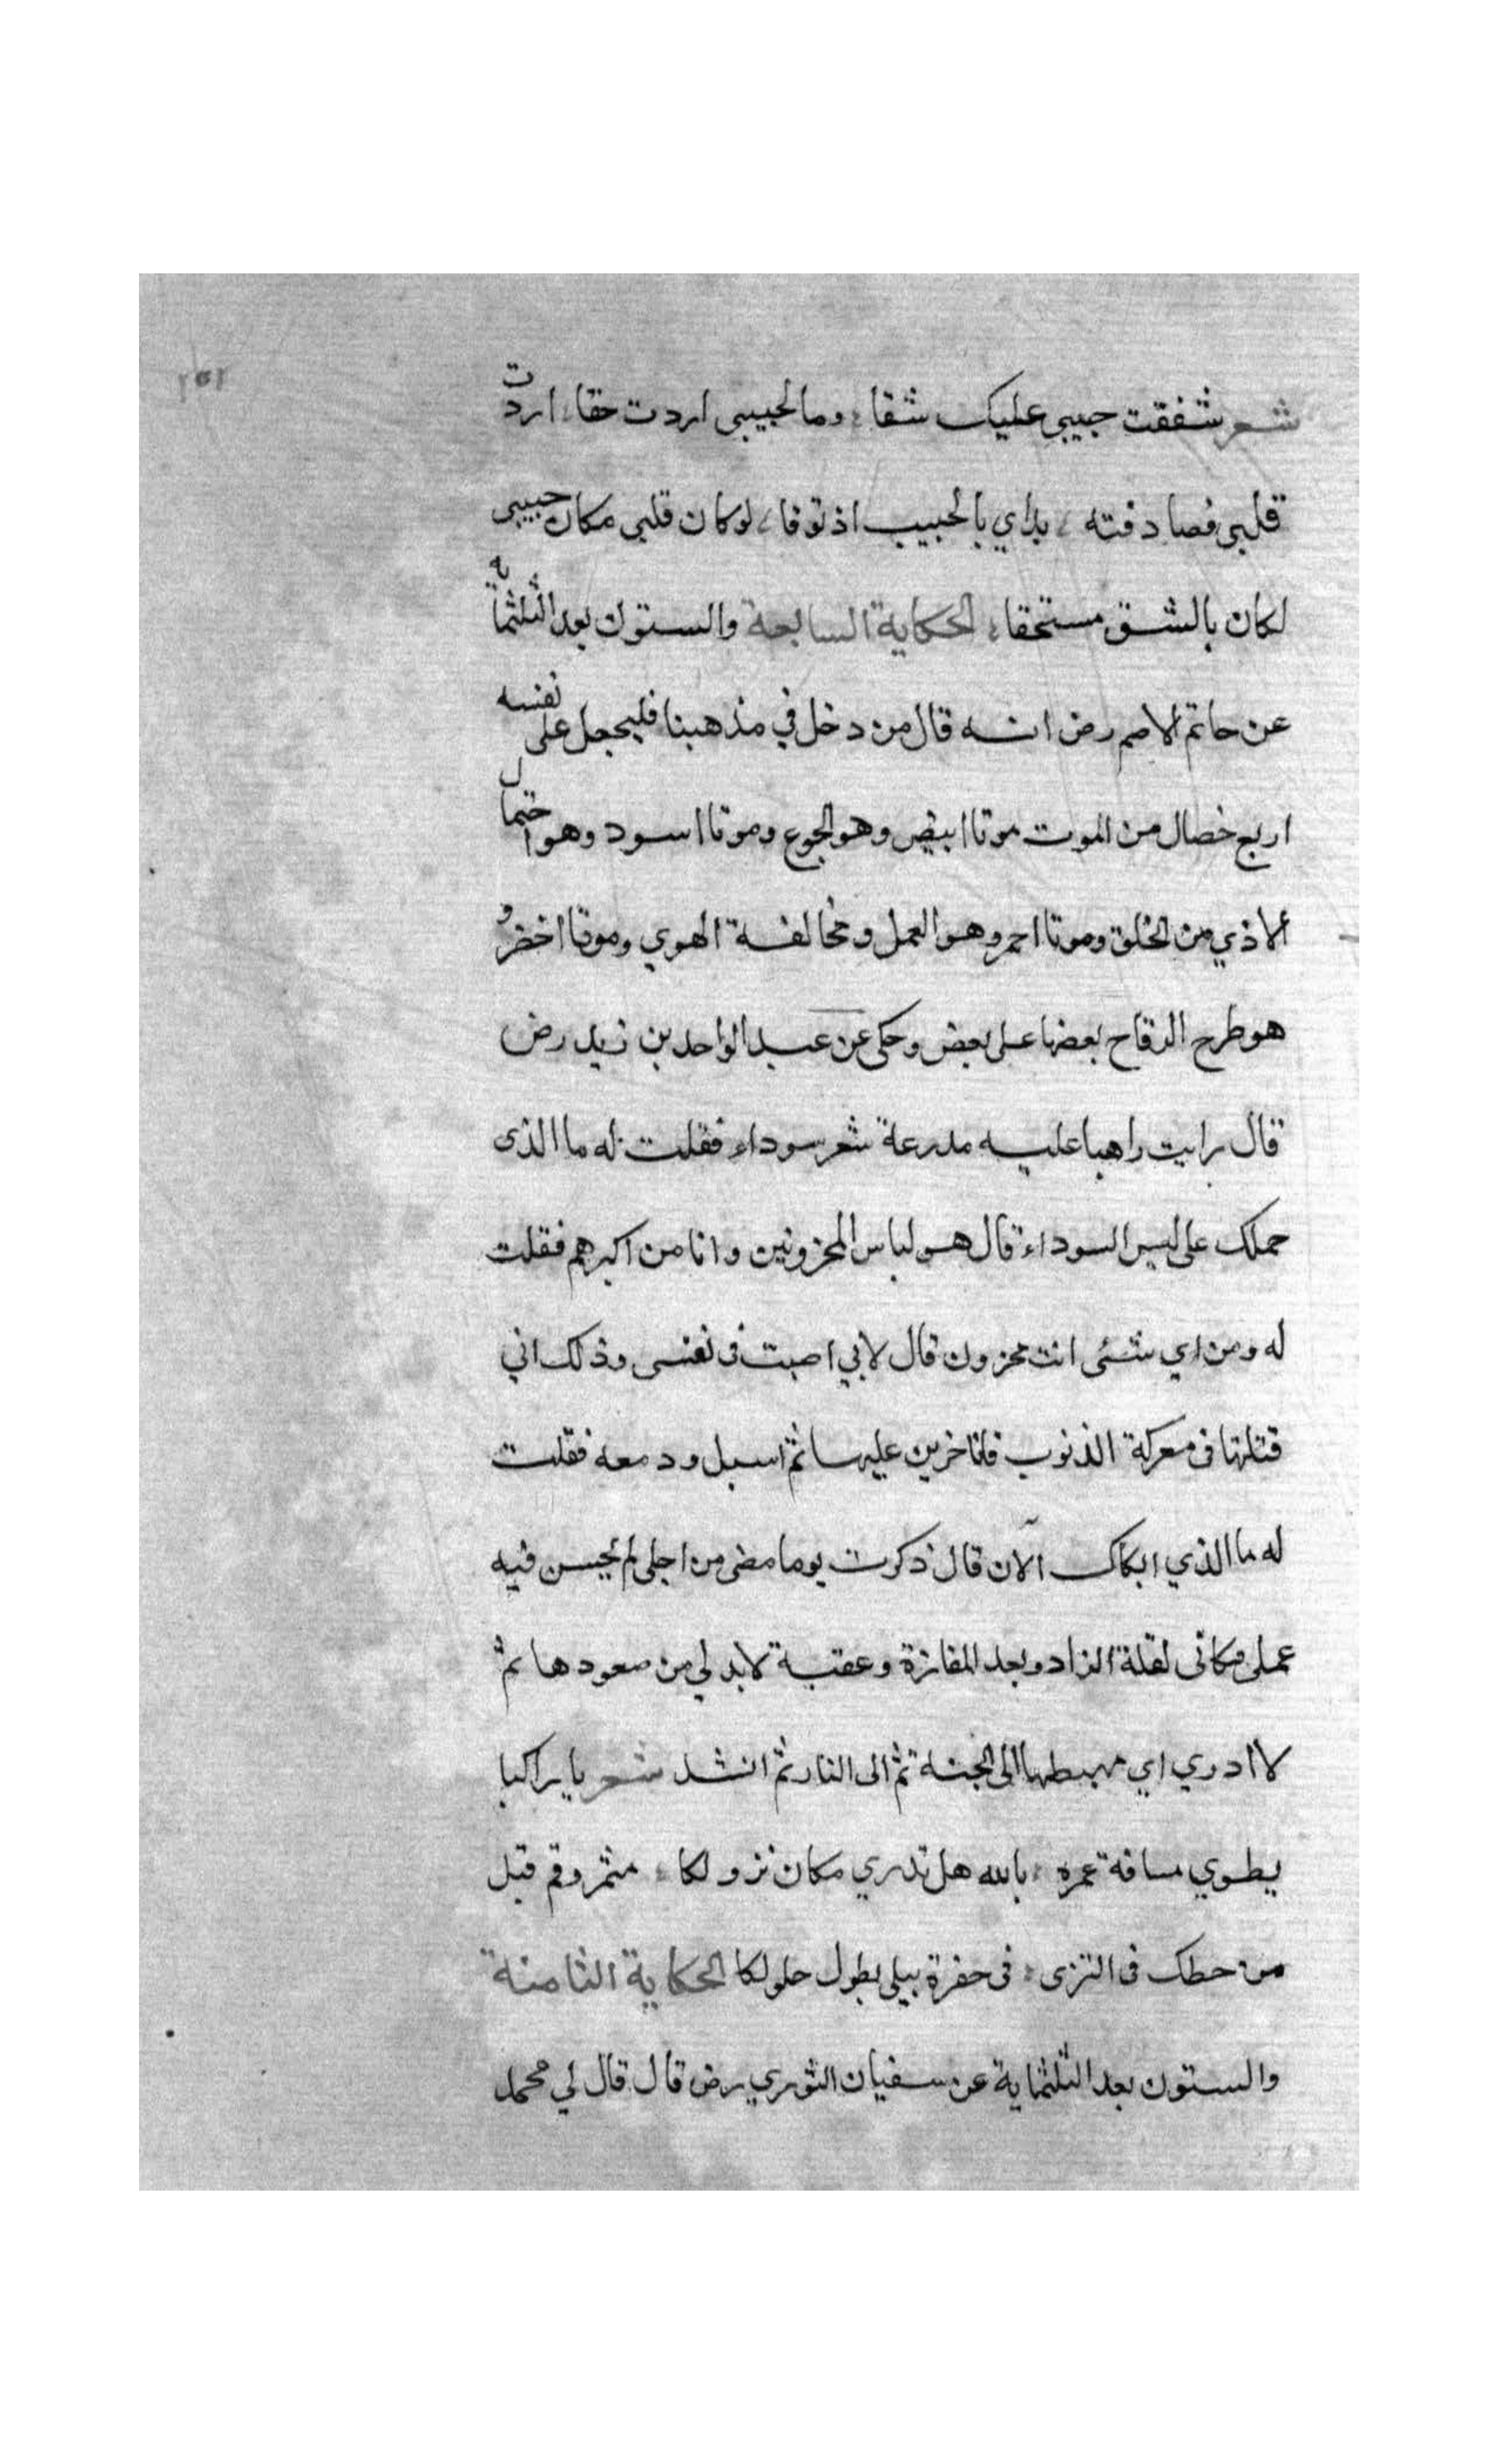 ١٥١
شعر شفقت جيبي عليك شقا وما لجيبي اردت حقا اردت
قلبي فصادفته يداي بالجيب اذ توقا لو كان قلبي مكان جيبي
لكان بالشق مستحقا الحكاية السابعة والستون بعد الثلثماية
عن حاتم الاصم رض انه قال من دخل في مذهبنا فليجعل على نفسه
اربع خصال من الموت موتا ابيض وهو الجوع وموتا اسود وهو احتمال
الاذي من الخلق وموتا احمر وهو العمل ومخالفة الهوي وموتا اخضر و
هو طرح الرقاع بعضها على بعض وحكى عن عبد الواحد بن زيد رض
قال رايت راهبا عليه مدرعة شعر سوداء فقلت له ما الذى
حملك على لبس السوداء قال هو لباس المحزونين وانا من اكبرهم فقلت
له ومن اي شئى انت محزون قال لاني اصبت فى نفسى وذلك اني
قتلتها فى معركة الذنوب فانا حزين عليها ثم اسبل ودمعه فقلت
له ما الذي ابكاك الآن قال ذكرت يوما مضى من اجلى لم يحسن فيه
عملى فبكائى لقلة الزاد وبعد المفازة وعقبة لا بد لي من صعودها ثم
لا ادري اي مهبطها الى الجنة ثم الى النار ثم انشد شعر يا راكبا
يطوي مسافة عمره بالله هل تدري مكان نزولكا شمر وقم قبل
من حطك فى الثرى فى حفرة يبلى بطول حلولكا الحكاية الثامنة
والستون بعد الثلثماية عن سفيان الثوري رض قال قال لي محمد